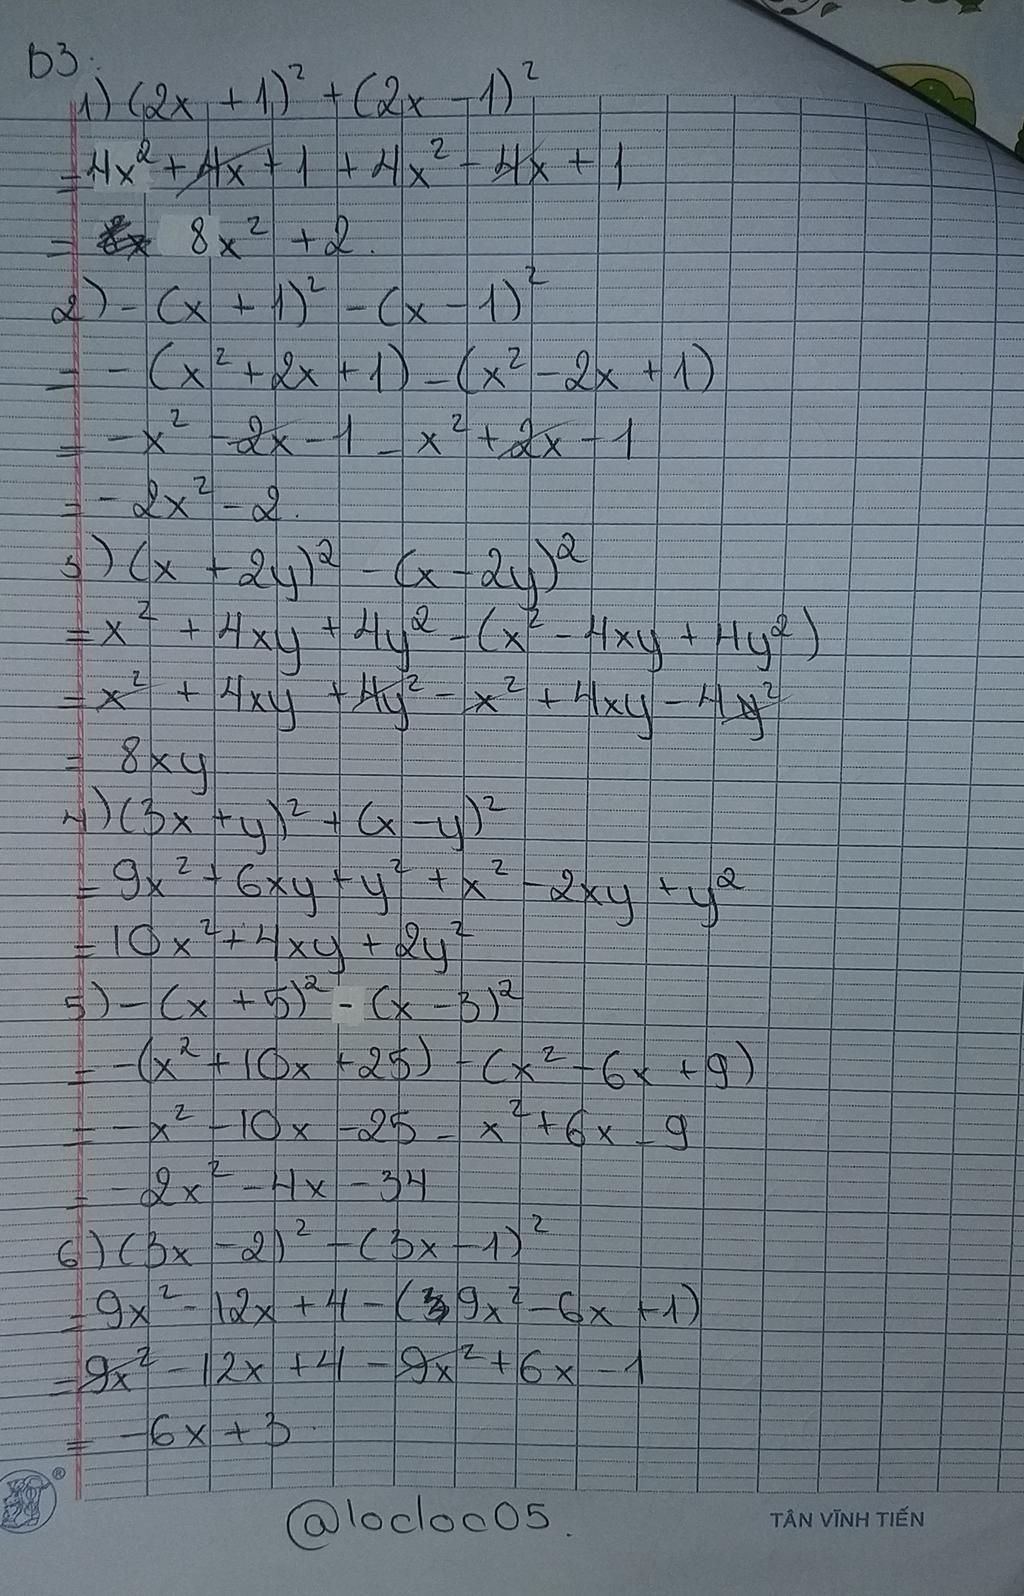 B3:
1) (2x + 1)² + (2x - 1)²
= 4x² + 4x + 1 + 4x² - 4x + 1
= 8x² + 2.
2) - (x + 1)² - (x - 1)²
= - (x² + 2x + 1) - (x² - 2x + 1)
= - x² - 2x - 1 - x² + 2x - 1
= - 2x² - 2.
3) (x + 2y)² - (x - 2y)²
= x² + 4xy + 4y² - (x² - 4xy + 4y²)
= x² + 4xy + 4y² - x² + 4xy - 4y²
= 8xy
4) (3x + y)² + (x - y)²
= 9x² + 6xy + y² + x² - 2xy + y²
= 10x² + 4xy + 2y²
5) - (x + 5)² - (x - 3)²
= - (x² + 10x + 25) - (x² - 6x + 9)
= - x² - 10x - 25 - x² + 6x - 9
= - 2x² - 4x - 34
6) (3x - 2)² - (3x - 1)²
= 9x² - 12x + 4 - (9x² - 6x + 1)
= 9x² - 12x + 4 - 9x² + 6x - 1
= - 6x + 3
@locloc05.
TÂN VĨNH TIẾN